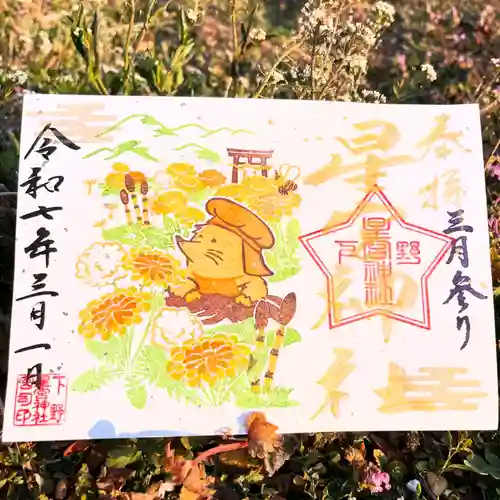 春暖
三月参り
星宮神社
下野
星宮神社
令和七年三月一日
下野
星宮神社
宮司印